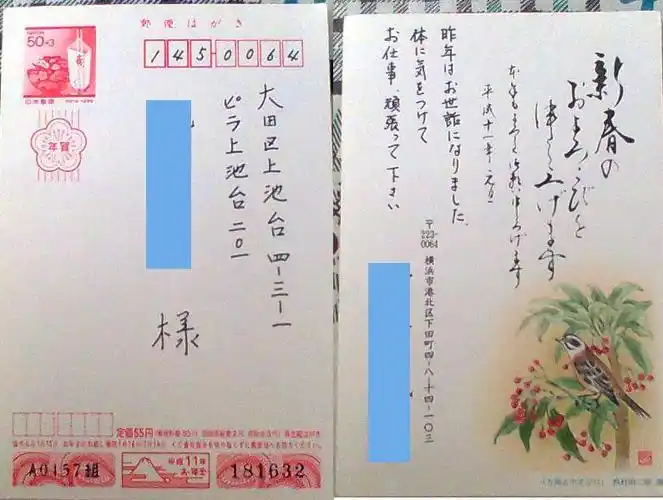 郵便はがき
50+3
日本郵便
145-0064
大田区上池台四-三-一
ピラ上池台二〇一
様
年賀
定価55円
平成11年
お年玉
A0457組
181632
新春の
およろこびを
申し上げます
本年もよろしくお願い申しあげます
平成十一年元旦
昨年はお世話になりました。
体に気をつけて
お仕事、頑張って下さい
〒223-0064
横浜市港北区下田町四-八-十四-一〇三